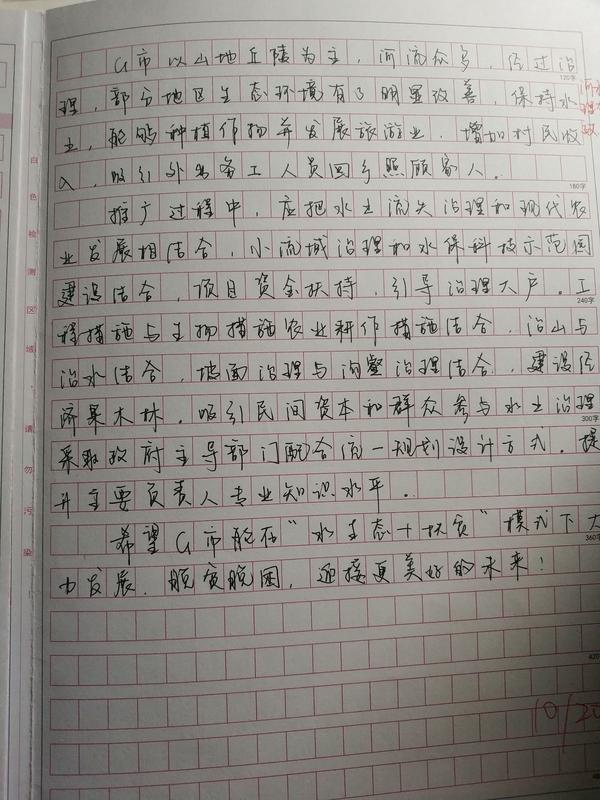 G市以山地丘陵为主，河流众多，经过治
120字
理，部分地区生态环境有了明显改善，保持水
土，能够种植作物并发展旅游业，增加村民收
入，吸引外出务工人员回乡照顾家人。
180字
推广过程中，应把水土流失治理和现代农
业发展相结合，小流域治理和水保科技示范园
建设结合，项目资金扶持，引导治理大户。工
240字
程措施与生物措施农业耕作措施结合，治山与
治水结合，坡面治理与沟壑治理结合，建设经
济果木林，吸引民间资本和群众参与水土治理
300字
采取政府主导部门配合统一规划设计方式，提
升主要负责人专业知识水平。
希望G市能在“水生态+扶贫”模式下大
360字
力发展，脱贫脱困，迎接更美好的未来！
420
10/20
白色检测区域，请勿污染